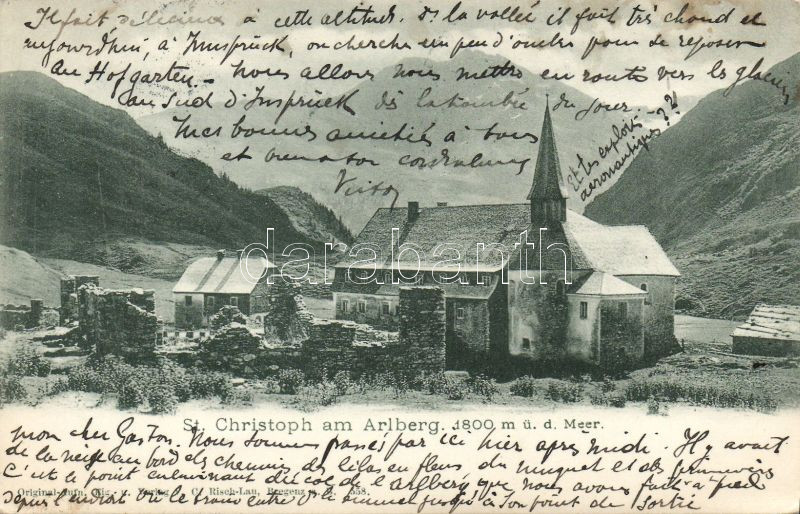 Il fait délicieux à cette altitude. ds la vallée il fait très chaud et
aujourd'hui, à Innsprück, on cherche un peu d'ombre pour se reposer
au Hofgarten – nous allons nous mettre en route vers les glaciers
au sud d'Insprück dès la tombée du jour.
Mes bonnes amitiés à tous
et bien à toi cordialement
Victor
Et tes exploits
aéronautiques??
darabanth.com
St. Christoph am Arlberg. 1800 m ü. d. Meer.
mon cher Gaston. Nous sommes passé par ici hier après midi. Il y avait
de la neige au bord des chemins des lilas en fleurs du muguet et des primevères
C'est le point culminant du col de l'Arlberg que nous avons fait à pied
depuis l'endroit où le train entre ds le tunnel jusqu'à son point de sortie
Original-Aufn. C. Risch-Lau, Bregenz 558.